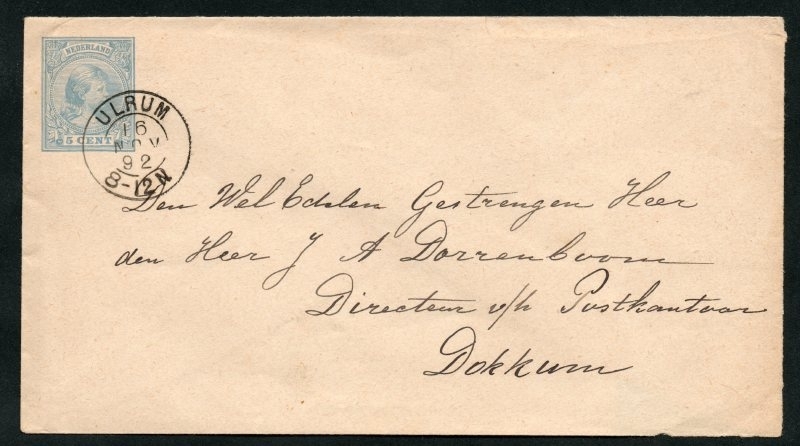 NEDERLAND
5 CENT
ULRUM
16
NOV
92
8-12N
Den Wel Edelen Gestrengen Heer
den Heer J A Dorrenboom
Directeur v/h Postkantoor
Dokkum